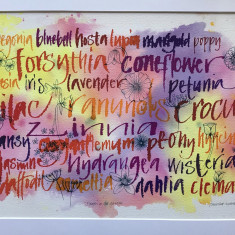 begonia bluebell hosta lupin marigold poppy
forsythia coneflower
iris lavender petunia
lilac ranunculus crocu
zinnia
pansy peony
jasmine hydrangea wisteria
daffodil camellia dahlia clema